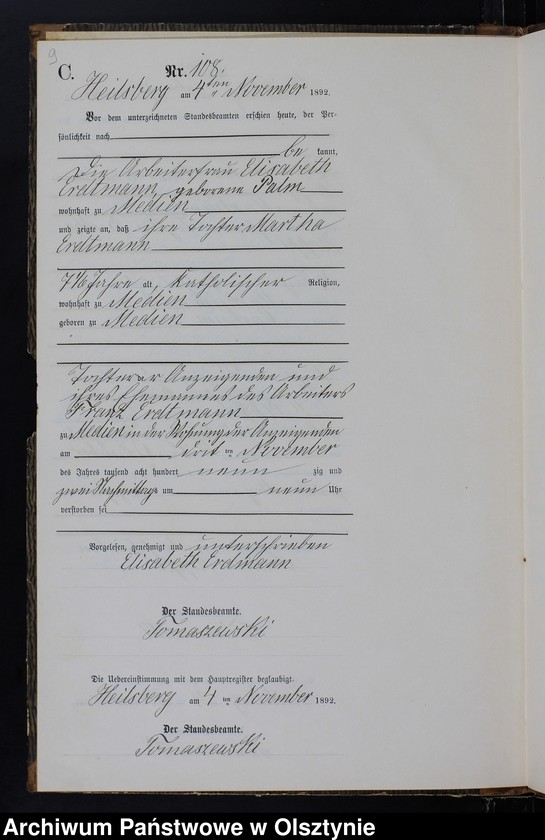 9
C.
Nr. 108.
Heilsberg am 4ten November 1892.
Vor dem unterzeichneten Standesbeamten erschien heute, der Per-
sönlichkeit nach
be kannt,
Die Arbeiterfrau Elisabeth
Erdtmann, geborene Palm
wohnhaft zu Medien
und zeigte an, daß ihre Tochter Martha
Erdtmann
Jahre alt, Katholischer Religion,
wohnhaft zu Medien
geboren zu Medien
Tochter der Anzeigenden und
ihres Ehemannes des Arbeiters
Franz Erdtmann
zu Medien in der Wohnung der Anzeigenden
am drit ten November
des Jahres tausend acht hundert neun zig und
zwei Nachmittags um neun Uhr
verstorben sei
Vorgelesen, genehmigt und unterschrieben
Elisabeth Erdmann
Der Standesbeamte.
Tomaszewski
Die Uebereinstimmung mit dem Hauptregister beglaubigt.
Heilsberg am 4 ten November 1892.
Der Standesbeamte.
Tomaszewski
Archiwum Państwowe w Olsztynie